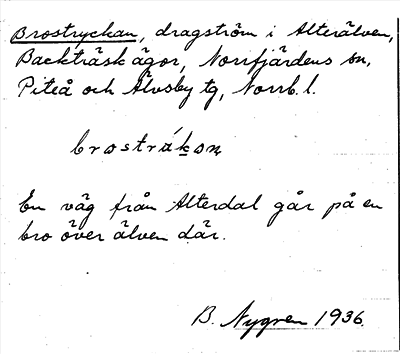 Brostryckan, dragström i Alterälven,
Backträsk ägor, Norrfjärdens sn,
Piteå och Älvsby tg, Norrb. l.
brostrákon
En väg från Alterdal går på en
bro över älven där.
B. Nygren 1936.